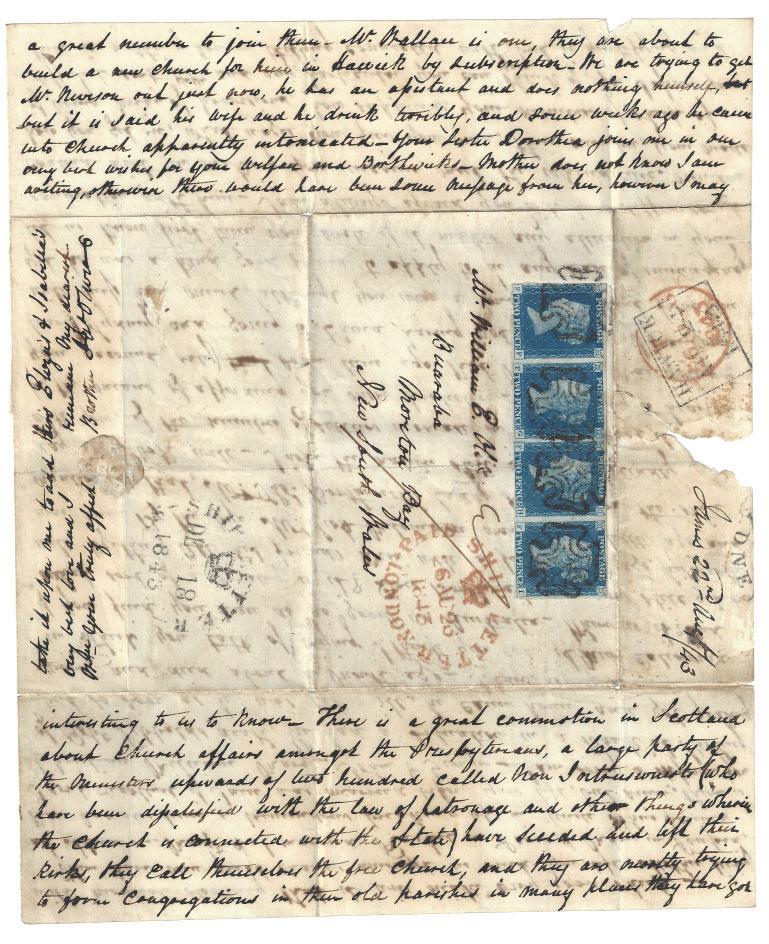 a great number to join them - Mr. Wallace is one, they are about to
build a new Church for him in Hawick by subscription - We are trying to get
Mr. out just now, he has an assistant and does nothing himself,
but it is said his wife and he drink terribly, and some weeks ago he came
into Church apparently intoxicated - Your Sister Dorothea joins me in our
very best wishes for your welfare and Borthwicks - Mother does not know I am
writing, otherwise there would have been some message from her, however I may
take it upon me to add hers Eliza's & Isabella's
very best love and I remain My dearest
your truly affect Brother
Mr. William E.
Buaraba
Moreton Bay
New South Wales
POSTAGE
TWO PENCE
POSTAGE
TWO PENCE
POSTAGE
TWO PENCE
POSTAGE
TWO PENCE
PAID SHIP LETTER LONDON
26 AU 26
1843
SHIP LETTER
DE 18
1843
James 22nd Augt /43
interesting to us to know - There is a great commotion in Scotland
about Church affairs amongst the Presbyterians, a large party of
the Ministers upwards of two hundred called Non Intrusionists (who
have been dissatisfied with the law of patronage and other things wherein
the Church is connected with the State) have seceded and left their
Kirks, they call themselves the free Church, and they are mostly trying
to form Congregations in their old parishes in many places they have got